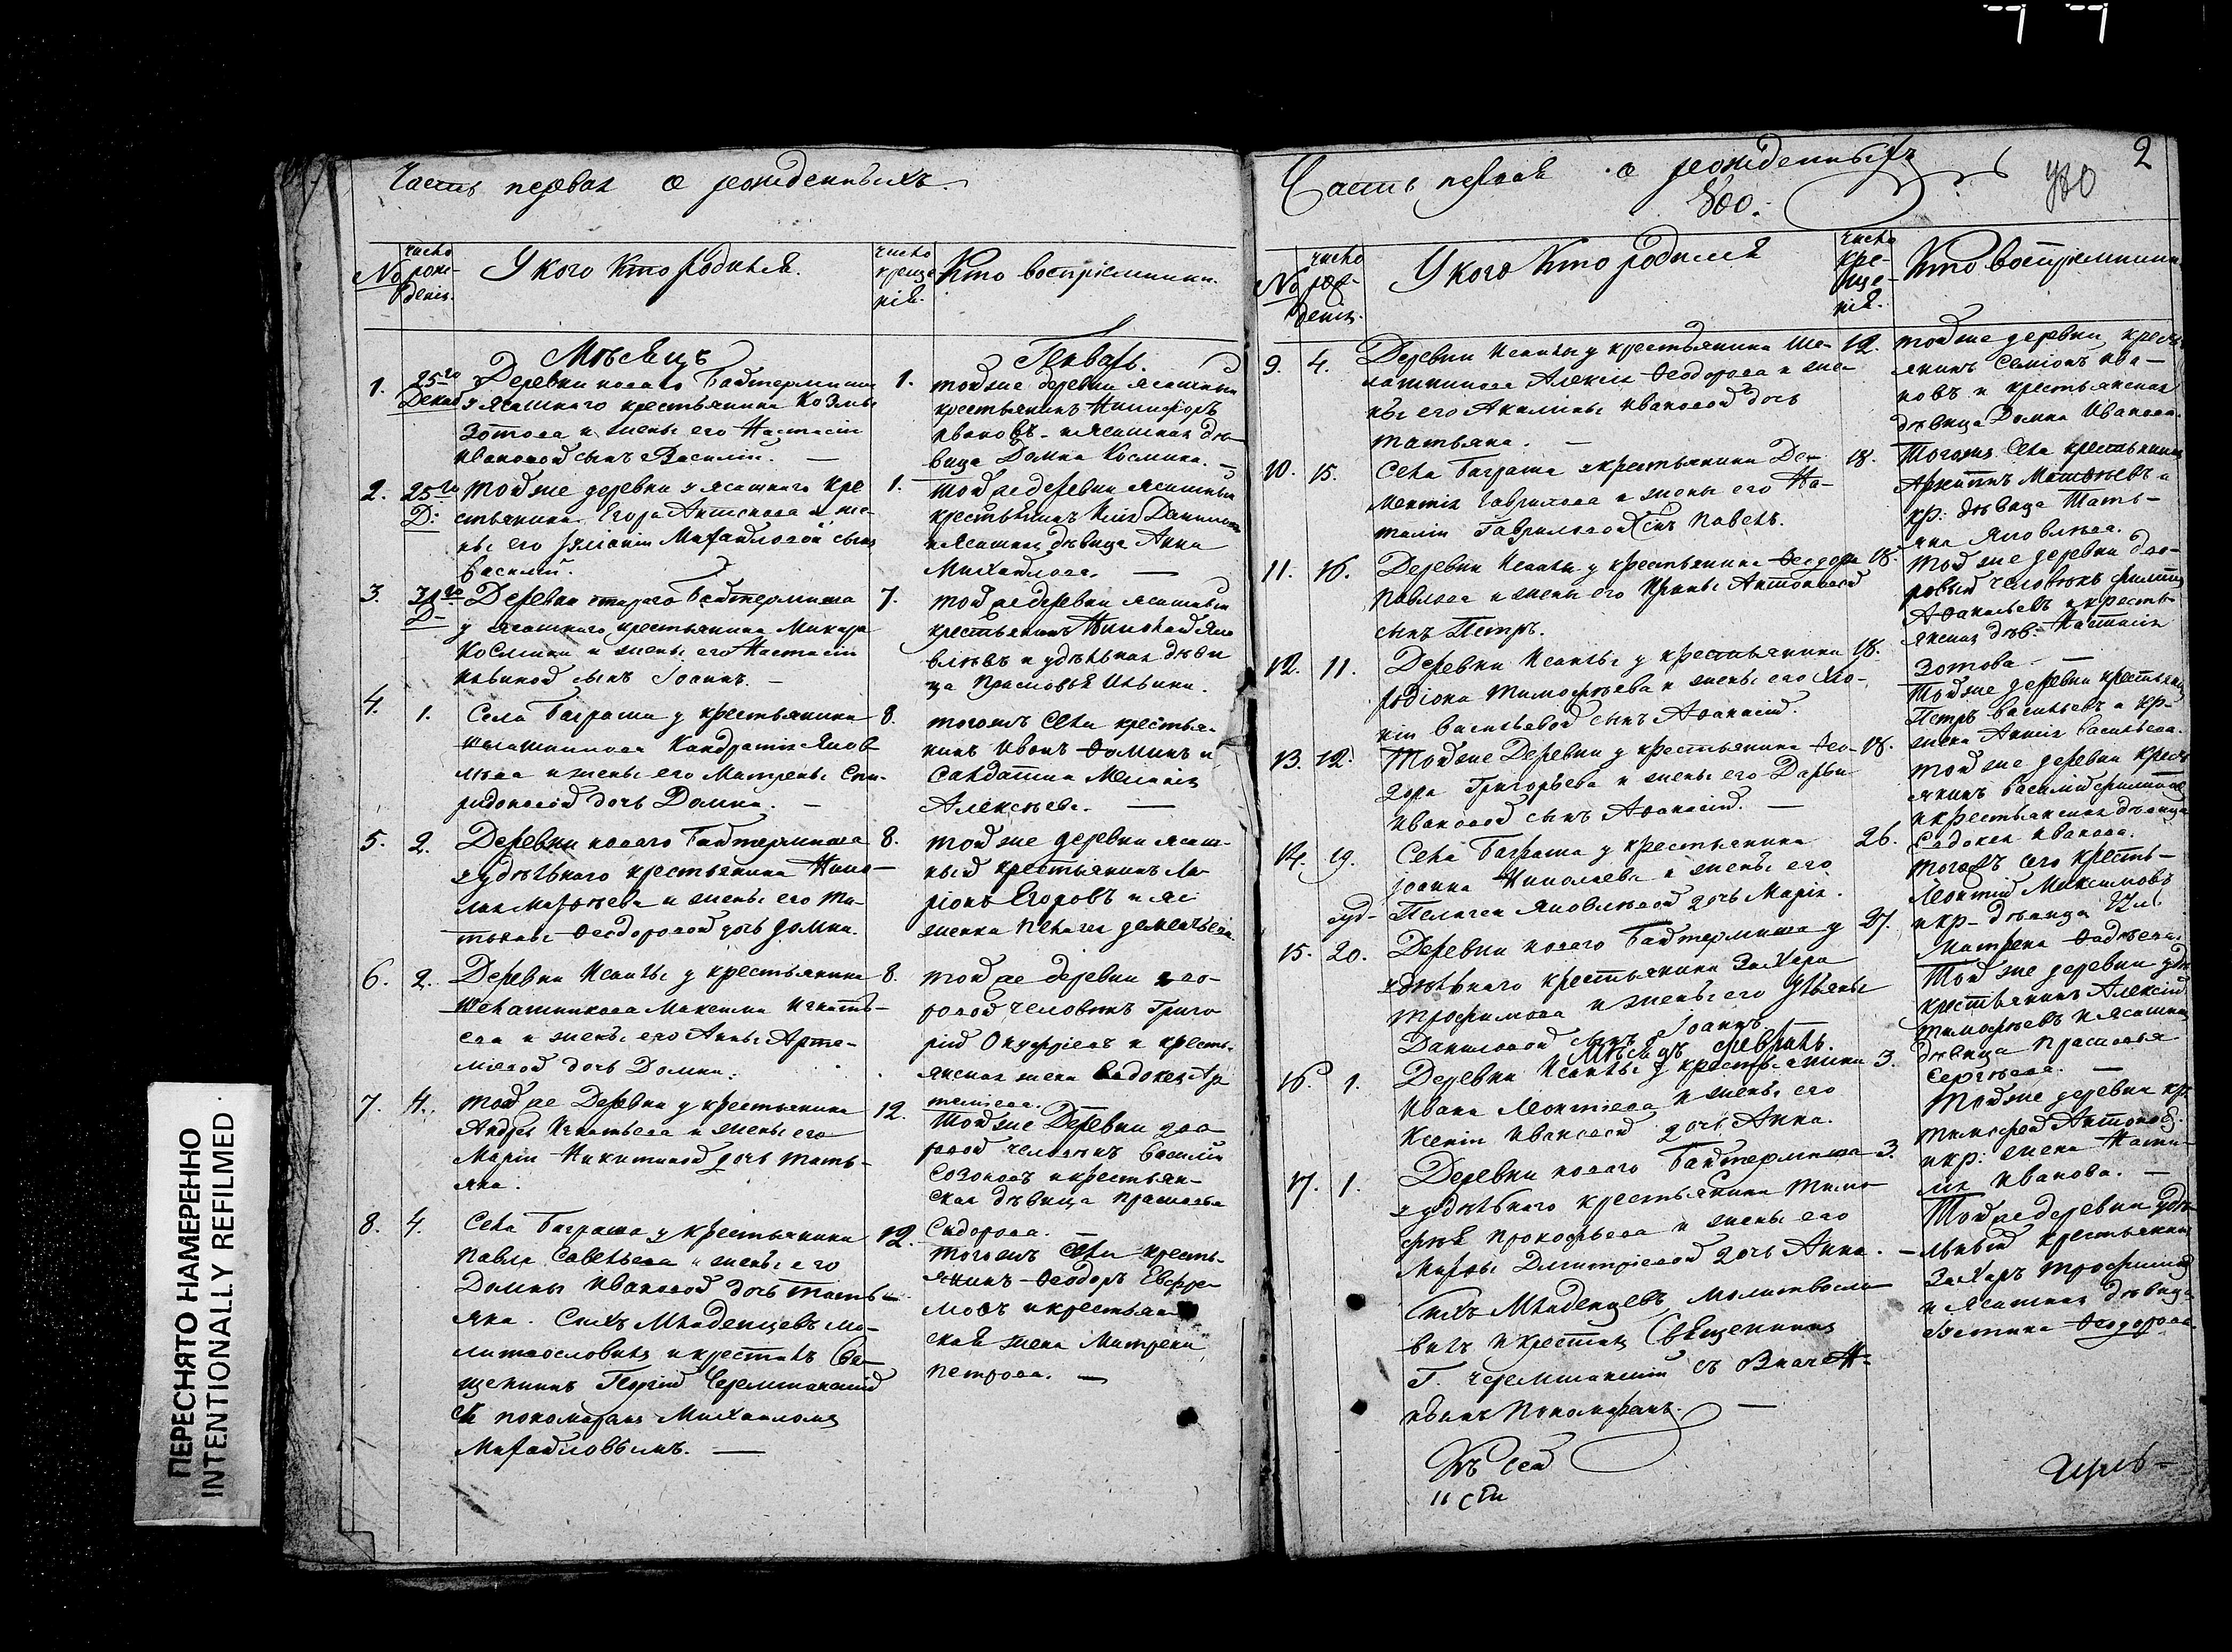 Часть первая о рожденныхъ.
№
число рождения.
У кого кто родился.
число крещенія.
Кто воспріемники.
Мѣсяцъ
Генварь.
1.
25го Декаб
Деревни новаго Байтермиша
у ясашнаго крестьянина Козмы
Зотова и жены его Настасіи
Ивановой сынъ Василій. —
1.
той же деревни ясашный
крестьянинъ Никифоръ
Ивановъ и ясашная дѣ-
вица Домна Космина. —
2.
25го Д:
Той же деревни у ясашнаго кре
стьянина Егора и же-
ны его Михайловой сынъ
Василій.
1.
Той же деревни ясашный
крестьянинъ Илія
и ясашная дѣвица Анна
Михайлова. —
3.
Д-
Деревни стараго Байтермиша
у ясашнаго крестьянина Макара
Космина и жены его Настасіи
Ильиной сынъ Іоаннъ. —
7.
той же деревни ясашный
крестьянинъ Николай Яко
влевъ и удѣльная дѣви
ца Прасковья Ильина.
4.
1.
Села Баграша у крестьянина
Кондратія Яков
лева и жены его Матрены Спи-
ридоновой дочь Домна. —
8.
тогожъ Села крестья-
нинъ Иванъ Ѳоминъ и
Солдатка Меланія
Алексѣева. —
5.
2.
Деревни новаго Байтермиша
удѣльнаго крестьянина Нико-
лая Матвѣева и жены его Та-
тьяны Ѳеодоровой дочь Домна.
8.
той же деревни ясаш-
ный крестьянинъ Ла-
ріонъ Егоровъ и яс:
женка Пелагея
6.
2.
Деревни Исаклы у крестьянина
Шелашникова Максима Игнать-
ева и жены его Анны Арте-
міевой дочь Домна.
8.
той же деревни дво-
ровой человѣкъ Григо
рій и кресть-
янская жена Евдокея Ар
теміева.
7.
4.
той же Деревни у крестьянина
Андрея Игнатьева и жены его
Маріи Никитиной дочь Тать-
яна.
12.
Той же Деревни дво
ровой человѣкъ Василій
Созоновъ и крестьян-
ская дѣвица Прасковья
Сидорова. —
8.
4.
Села Баграша у крестьянина
Павла Савельева и жены его
Домны Ивановой дочь Тать-
яна. Сихъ Младенцевъ мо-
литвословилъ и крестилъ Свя-
щенникъ Георгій Черемшанскій
съ пономаремъ Михаиломъ
Михайловымъ. —
12.
тогожъ Села кресть-
янинъ Ѳеодоръ Ефре-
мовъ и крестьян
ская жена Матрена
Петрова. —
Часть первая о рожденныхъ
2
№
число рожденія.
У кого Кто родился
число крещенія.
Кто воспріемники
9.
4.
Деревни Исаклы у крестьянина Ше-
лашникова Алексія Ѳеодорова и же-
ны его Акилины Ивановой дочь
Татьяна. —
12.
той же деревни крест
янинъ Семіонъ Ива-
новъ и крестьянская
дѣвица Домна Иванова.
10.
15.
Села Баграша у крестьянина Де-
ментія Гаврилова и жены его На-
таліи Гавриловой сынъ Павелъ.
18.
Тогожъ Села крестьянинъ
Архиппъ Матвѣевъ и
кр: дѣвица Тать-
яна Яковлева.
11.
16.
Деревни Исаклы у крестьянина Ѳеодора
Павлова и жены его Ирины Антоновой
сынъ Петръ.
18.
Той же деревни дво-
ровый человѣкъ Филиппъ
Аѳанасьевъ и кресть-
янская дѣв: Настасія
Зотова —
12.
11.
Деревни Исаклы у крестьянина
Родіона Тимофѣева и жены его Хіо-
ніи Васильевой сынъ Аѳанасій.
18.
Той же деревни крестьянинъ
Петръ Васильевъ и кр-
жена Анисія Васильева.
13.
12.
Той же Деревни у крестьянина Ѳео-
дора Григорьева и жены его Дарьи
Ивановой сынъ Аѳанасій. —
18.
той же деревни крест
янинъ Василій Филиппов
и крестьянская дѣвица
Евдокея Иванова.
14.
19.
Села Баграша у крестьянина
Іоанна Николаева и жены его
Пелагеи Яковлевой дочь Марія.
26.
тогожъ сего кресть-
Леонтій Максимовъ
и кр- дѣвица
Матрена Ѳадѣева.
15.
20.
Деревни новаго Байтермиша у
удѣльнаго крестьянина Захара
Трофимова и жены его Ульяны
Даниловой сынъ Іоаннъ.
27.
Той же деревни удѣ
крестьянинъ Алексій
Тимофѣевъ и ясашная
дѣвица Прасковья
Сергѣева. —
Мѣсяцъ февраль.
16.
1.
Деревни Исаклы у крестьянина
Ивана Леонтіева и жены его
Ксеніи Ивановой дочь Анна.
3.
Той же деревни кр:
Тимофей Антоновъ
и кр: жена Ната-
лія Иванова. —
17.
1.
Деревни новаго Байтермиша
у удѣльнаго крестьянина Тимо
фѣя Прокофьева и жены его
Марфы Дмитріевой дочь Анна. —
3.
Той же деревни удѣ-
льный крестьянинъ
Захаръ Трофимов
и ясашная дѣвица
Ѳеодорова.
Сихъ Младенцевъ молитвосло-
вилъ и крестилъ Священникъ
Г. Черемшанскій съ
Пономаремъ. —
Къ сей